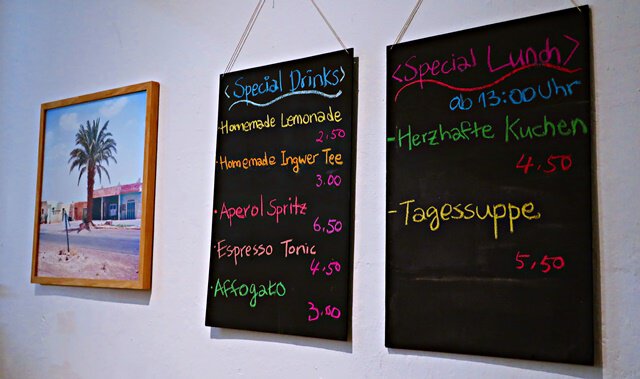 <Special Drinks>
·Homemade Lemonade
2,50
·Homemade Ingwer Tee
3,00
·Aperol Spritz
6,50
·Espresso Tonic
4,50
·Affogato
3,00
<Special Lunch>
ab 13:00 Uhr
-Herzhafte Kuchen
4,50
-Tagessuppe
5,50